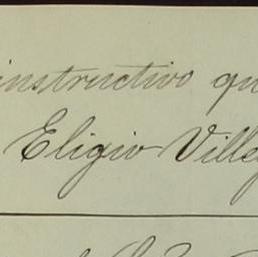 instructivo qu
Eligio Ville